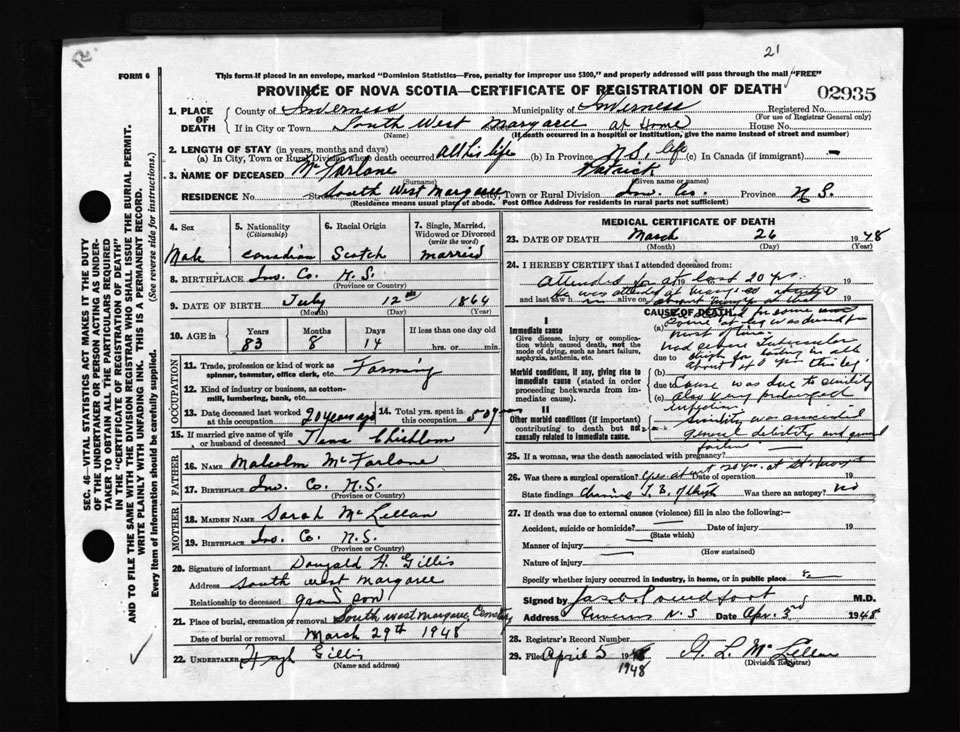 21
FORM 6
This form if placed in an envelope, marked "Dominion Statistics—Free, penalty for improper use $300," and properly addressed will pass through the mail "FREE"
PROVINCE OF NOVA SCOTIA—CERTIFICATE OF REGISTRATION OF DEATH 02935
1. PLACE OF DEATH County of Inverness Municipality of Inverness Registered No.
(For use of Registrar General only)
If in City or Town South West Margaree at Home House No.
(Name) (If death occurred in a hospital or institution, give the name instead of street and number)
2. LENGTH OF STAY (in years, months and days)
(a) In City, Town or Rural Division where death occurred all his life (b) In Province N.S. life (c) In Canada (if immigrant) —
3. NAME OF DECEASED McFarlane Patrick
(Surname) (Given name or names)
RESIDENCE No. Street South West Margaree City, Town or Rural Division Inv. Co. Province N.S.
(Residence means usual place of abode. Post Office Address for residents in rural parts not sufficient)
SEC. 46—VITAL STATISTICS ACT MAKES IT THE DUTY
OF THE UNDERTAKER OR PERSON ACTING AS UNDER-
TAKER TO OBTAIN ALL THE PARTICULARS REQUIRED
IN THE "CERTIFICATE OF REGISTRATION OF DEATH"
AND TO FILE THE SAME WITH THE DIVISION REGISTRAR WHO SHALL ISSUE THE BURIAL PERMIT.
WRITE PLAINLY WITH UNFADING INK. THIS IS A PERMANENT RECORD.
Every item of Information should be carefully supplied. (See reverse side for instructions.)
4. Sex 5. Nationality (Citizenship) 6. Racial Origin 7. Single, Married, Widowed or Divorced (write the word)
Male Canadian Scotch married
8. BIRTHPLACE Inv. Co. N.S.
(Province or Country)
9. DATE OF BIRTH July 12th 1864
(Month) (Day) (Year)
10. AGE in Years Months Days If less than one day old
83 8 14 hrs. or min.
OCCUPATION
11. Trade, profession or kind of work as spinner, teamster, office clerk, etc. Farming
12. Kind of industry or business, as cotton-mill, lumbering, bank, etc.
13. Date deceased last worked at this occupation 20 years ago 14. Total yrs. spent in this occupation 50 years
15. If married give name of wife or husband of deceased Chishlom
FATHER
16. NAME Malcolm McFarlane
17. BIRTHPLACE Inv. Co. N.S.
(Province or Country)
MOTHER
18. MAIDEN NAME Sarah McLellan
19. BIRTHPLACE Inv. Co. N.S.
(Province or Country)
20. Signature of informant Donald H. Gillis
Address South West Margaree
Relationship to deceased grand son
21. Place of burial, cremation or removal South west Margaree Cemetery
Date of burial or removal March 29th 1948
22. UNDERTAKER Hugh Gillis
(Name and address)
MEDICAL CERTIFICATE OF DEATH
23. DATE OF DEATH March 26 1948
(Month) (Day) (Year)
24. I HEREBY CERTIFY that I attended deceased from:
attended for at least 20 yrs.
He was attended at
and last saw h alive on
CAUSE OF DEATH
I
Immediate cause
Give disease, injury or complication which caused death, not the mode of dying, such as heart failure, asphyxia, asthenia, etc.
(a)
most of time.
had severe Tubercular
due to
Morbid conditions, if any, giving rise to immediate cause (stated in order proceeding backwards from immediate).
(b)
due to Cause was due to senility
(c) also very prolonged
infection.
II
Other morbid conditions (if important) contributing to death but not causally related to immediate cause.
senility was
general debility and general
25. If a woman, was the death associated with pregnancy?
26. Was there a surgical operation? yes about 20 yrs. at St Date of operation 19
State findings T.B. of Was there an autopsy? no
27. If death was due to external causes (violence) fill in also the following:—
Accident, suicide or homicide? Date of injury 19
(State which)
Manner of injury
(How sustained)
Nature of injury
Specify whether injury occurred in industry, in home, or in public place
Signed by Jas. Proudfoot M.D.
Address Inverness N.S Date Apr. 3rd 1948
28. Registrar's Record Number
29. Filed April 5 1948 H. L. McLellan
1948 (Division Registrar)